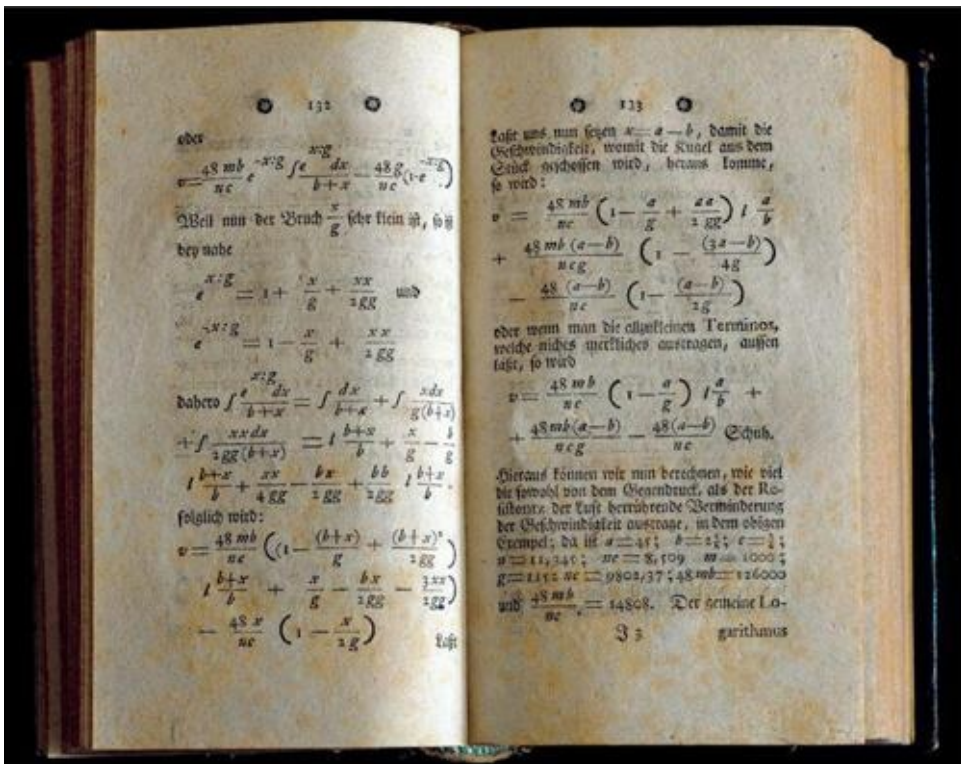 132
oder
v = 48 mb/nc e^-x:g ∫ e^x:g dx/b+x − 48 g/nc (1-e^-x:g)
Weil nun der Bruch x/g sehr klein ist, so ist
bey nahe
e^x:g = 1 + x/g + xx/2gg und
e^-x:g = 1 − x/g + xx/2gg
dahero ∫ e^x:g dx/b+x = ∫ dx/b+x + ∫ xdx/g(b+x)
+ ∫ xxdx/2gg(b+x) = l b+x/b + x/g − b/g
l b+x/b + xx/4gg − bx/2gg + bb/2gg l b+x/b.
folglich wird:
v = 48 mb/nc ((1 − (b+x)/g + (b+x)²/2gg)
l b+x/b + x/g − bx/2gg − 3xx/2gg)
− 48 x/nc (1 − x/2g)
Laßt
133
Laßt uns nun setzen x = a − b, damit die
Geschwindigkeit, womit die Kugel aus dem
Stück geschossen wird, heraus komme,
so wird:
v = 48 mb/nc (1 − a/g + aa/2gg) l a/b
+ 48 mb (a−b)/ncg (1 − (3a−b)/4g)
− 48 (a−b)/nc (1 − (a−b)/2g)
oder wenn man die allzukleinen Terminos,
welche nichts merkliches austragen, aussen
läßt, so wird
v = 48 mb/nc (1 − a/g) l a/b +
+ 48 mb (a−b)/ncg − 48 (a−b)/nc Schuh.
Hieraus können wir nun berechnen, wie viel
die sowohl von dem Gegendruck, als der Re-
sistontz der Luft herrührende Verminderung
der Geschwindigkeit austrage, in dem obigen
Exempel; da ist a = 45; b = 2⅝; c = ¾;
n = 11,345; nc = 8,509 m = 1000;
g = 1152 nc = 9802,37; 48 mb = 126000
und 48 mb/nc = 14808. Der gemeine Lo-
J 3 garithmus